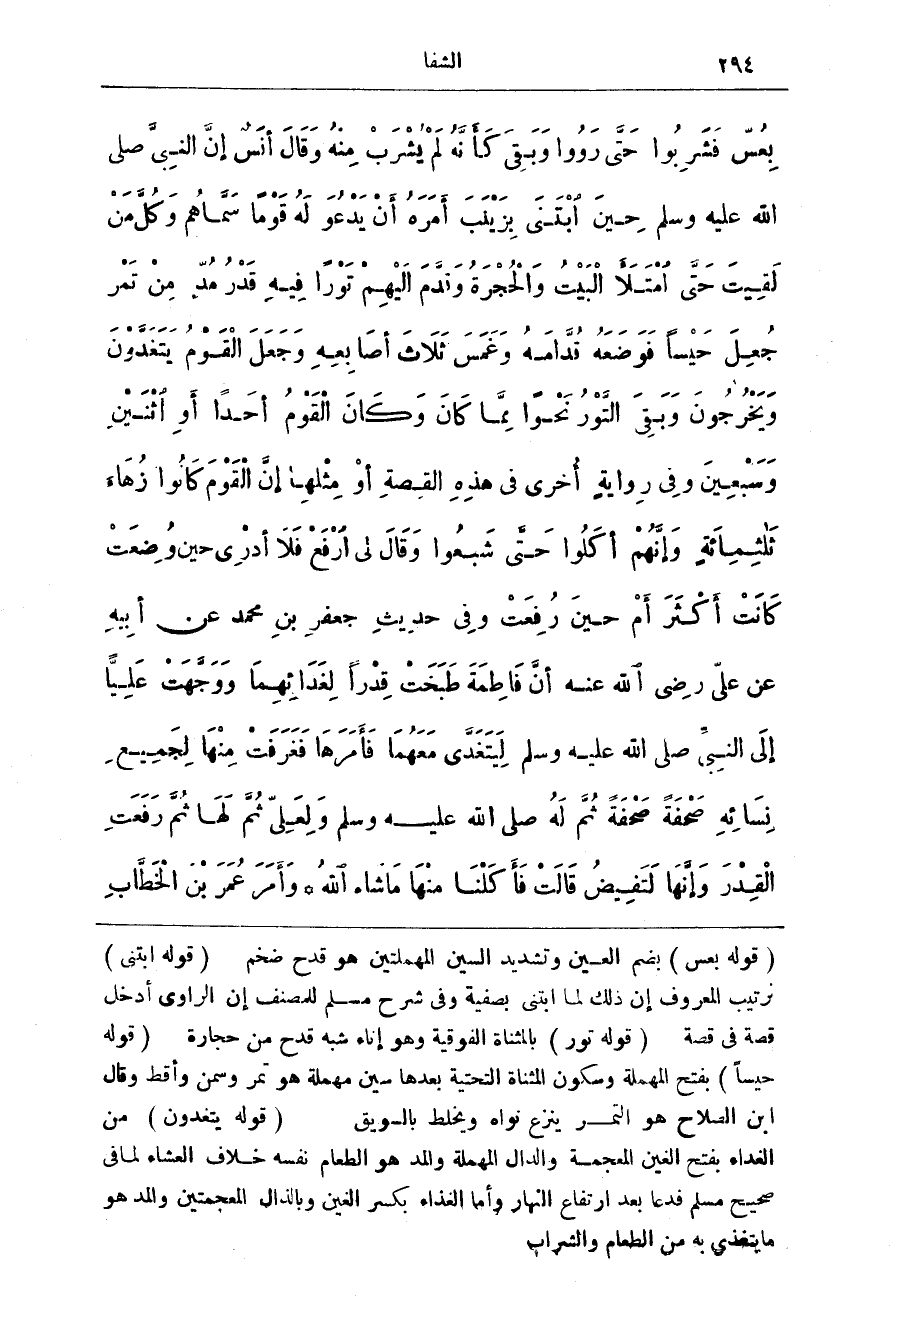 ٢٩٤
الشفا
بِعُسٍّ فَشَرِبُوا حَتَّى رَوُوا وَبَقِيَ كَأَنَّهُ لَمْ يُشْرَبْ مِنْهُ وَقَالَ أَنَسٌ إِنَّ النَّبِيَّ صلى
الله عليه وسلم حِينَ ابْتَنَى بِزَيْنَبَ أَمَرَهُ أَنْ يَدْعُوَ لَهُ قَوْمًا سَمَّاهُمْ وَكُلَّ مَنْ
لَقِيتَ حَتَّى امْتَلَأَ الْبَيْتُ وَالْحُجْرَةُ وَقَدَّمَ الَيْهِمْ تَوْرًا فِيهِ قَدْرُ مُدٍّ مِنْ تَمْرٍ
جُعِلَ حَيْساً فَوَضَعَهُ قُدَّامَهُ وَغَمَسَ ثَلَاثَ أَصَابِعِهِ وَجَعَلَ الْقَوْمُ يَتَغَدَّوْنَ
وَيَخْرُجُونَ وَبَقِيَ التَّوْرُ نَحْوًا مِمَّا كَانَ وَكَانَ الْقَوْمُ أَحَدًا أَوِ اثْنَيْنِ
وَسَبْعِينَ وفى رِوايةٍ أُخرى فى هذِهِ القِصةِ أوْ مِثْلِها إِنَّ الْقَوْمَ كَانُوا زُهَاءَ
ثَلٰثِمِائَةٍ وَإِنَّهُمْ أكَلُوا حَتَّى شَبِعُوا وَقَالَ لى ارْفَعْ فَلَا أدْرِى حين وُضِعَتْ
كَانَتْ أَكْثَرَ أَمْ حينَ رُفِعَتْ وفى حديثِ جعفرِ بنِ محمد عن أبيهِ
عن علىّ رضى الله عنه أنَّ فَاطِمَةَ طَبَخَتْ قِدْراً لِغَدَائِهِمَا وَوَجَّهَتْ عَلِيًّا
إلَى النبىِّ صلى الله عليه وسلم لِيَتَغَدَّى مَعَهُمَا فَأَمَرَهَا فَغَرَفَتْ مِنْهَا لِجَمِيعِ
نِسَائِهِ صَحْفَةً صَحْفَةً ثُمَّ لَهُ صلى الله عليه وسلم وَلِعَلِىٍّ ثُمَّ لَهَا ثُمَّ رَفَعَتِ
الْقِدْرَ وَإِنَّهَا لَتَفِيضُ قَالَتْ فَأَكَلْنَا مِنْهَا مَاشَاءَ اللهُ * وأَمَرَ عُمَرَ بْنَ الْخَطَّابِ
( قوله بعس ) بضم العين وتشديد السين المهملتين هو قدح ضخم ( قوله ابتنى )
ترتيب المعروف إن ذلك لما ابتنى بصفية وفى شرح مسلم للمصنف إن الراوى أدخل
قصة فى قصة ( قوله تور ) بالمثناة الفوقية وهو إناء شبه قدح من حجارة ( قوله
حيساً ) بفتح المهملة وسكون المثناة التحتية بعدها سين مهملة هو تمر وسمن وأقط وقال
ابن الصلاح هو التمر ينزع نواه ويخلط بالسويق ( قوله يتغدون ) من
الغداء بفتح الغين المعجمة والدال المهملة والمد هو الطعام نفسه خلاف العشاء لما فى
صحيح مسلم فدعا بعد ارتفاع النهار وأما الغذاء بكسر الغين وبالذال المعجمتين والمد هو
ما يتغذى به من الطعام والشراب